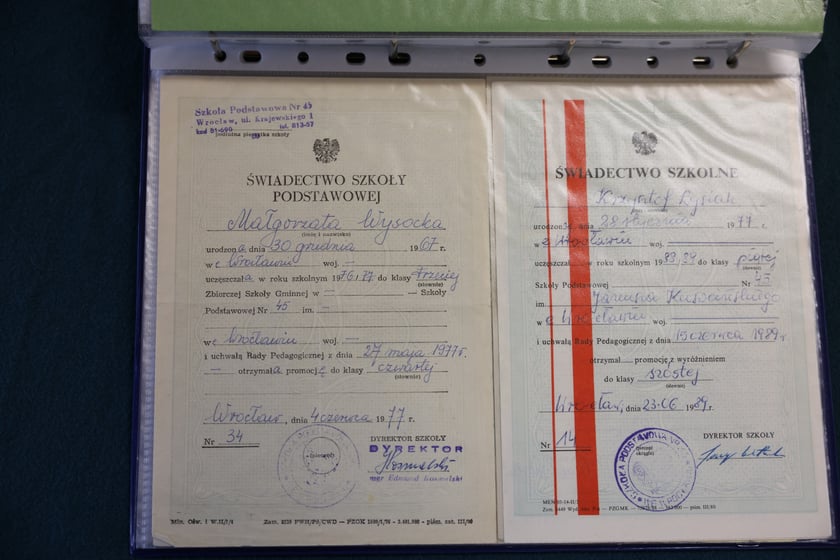 Szkoła Podstawowa Nr 45
Wrocław, ul. Krajewskiego 1
tel. 813-57
podłużna pieczątka szkoły
ŚWIADECTWO SZKOŁY
PODSTAWOWEJ
Małgorzata Wysocka
(imię i nazwisko)
urodzona dnia 30 grudnia 1967 r.
we Wrocławiu woj. —
uczęszczała w roku szkolnym 1976/77 do klasy trzeciej
(słownie)
Zbiorczej Szkoły Gminnej w — — Szkoły
Podstawowej Nr 45 im. —
we Wrocławiu woj. —
i uchwałą Rady Pedagogicznej z dnia 27 maja 1977r.
— otrzymała promocję do klasy czwartej
(słownie)
Wrocław, dnia 4 czerwca 1977 r.
Nr 34
(pieczęć)
DYREKTOR SZKOŁY
DYREKTOR
mgr Edmund
Min. Ośw. I W.II/2/4
ŚWIADECTWO SZKOLNE
Krzysztof Łysiak
urodzony dnia 28 stycznia 1977 r.
we Wrocławiu woj.
uczęszczał w roku szkolnym 1988/89 do klasy piątej
(słownie)
Szkoły Podstawowej Nr 45
im. Janusza
we Wrocławiu woj.
i uchwałą Rady Pedagogicznej z dnia 15 czerwca 1989 r
otrzymał promocję z wyróżnieniem
do klasy szóstej
(słownie)
Wrocław, dnia 23.06 1989 r.
Nr 14
(pieczęć
okrągła)
DYREKTOR SZKOŁY